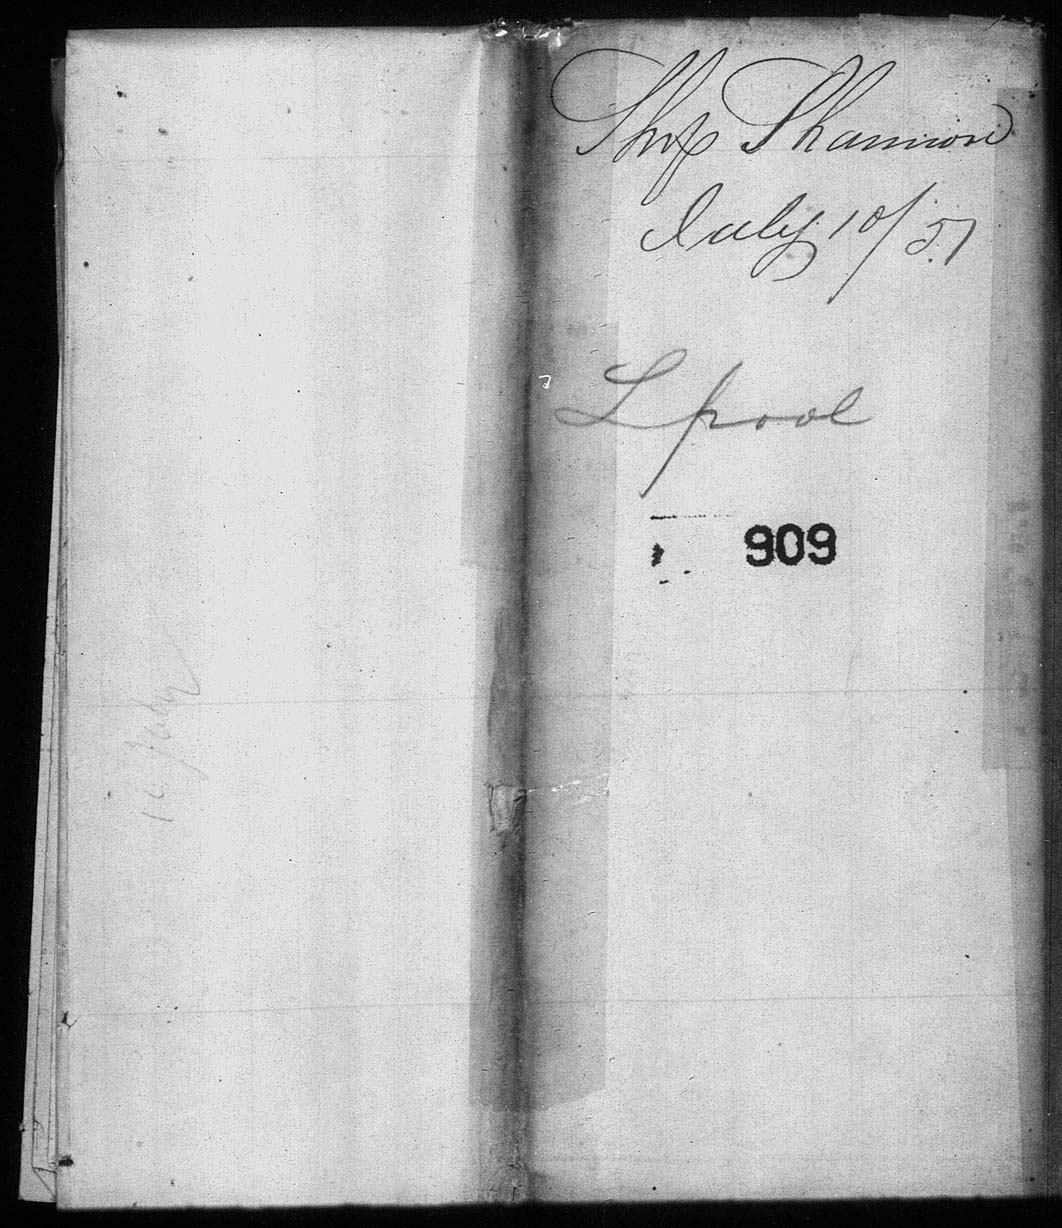 Ship Shannon
July 10/51
Lpool
909